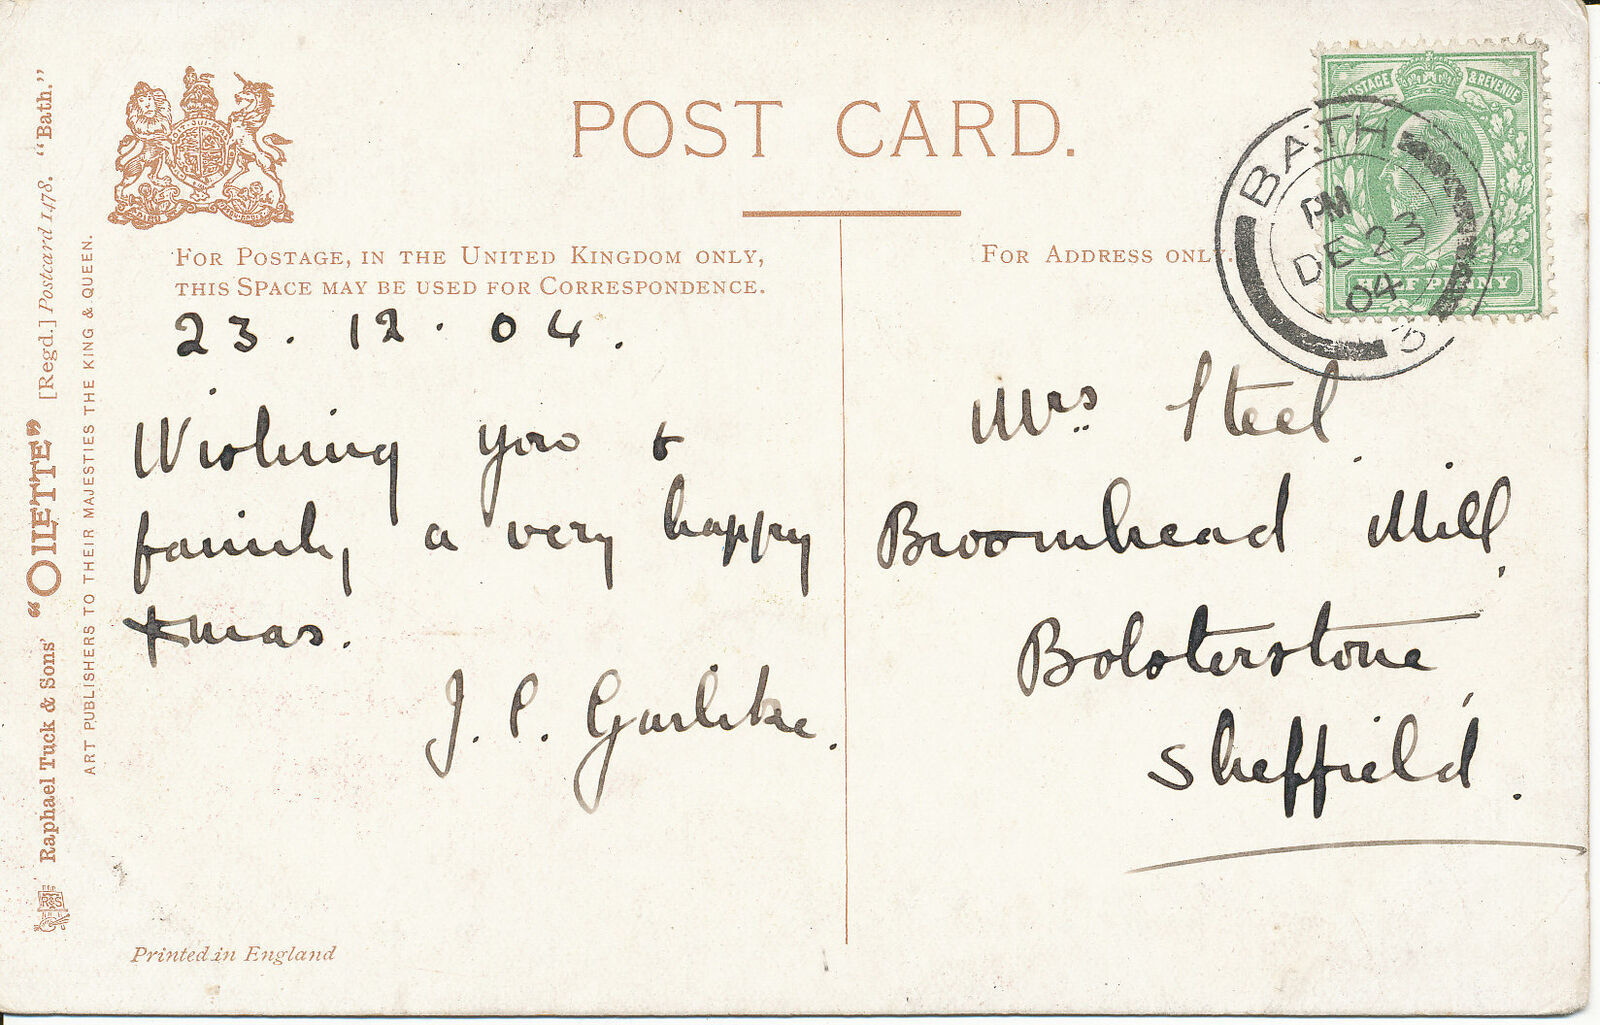 POST CARD.
FOR POSTAGE, IN THE UNITED KINGDOM ONLY,
THIS SPACE MAY BE USED FOR CORRESPONDENCE.
23. 12. 04.
Wishing you &
family a very happy
Xmas.
J. C. Garlike.
FOR ADDRESS ONLY.
Mrs. Steel
Broomhead Mill,
Bolsterstone,
Sheffield.
POSTAGE & REVENUE
HALF PENNY
BATH
PM
DE 23
04
Raphael Tuck & Sons' "OILETTE" [Regd.] Postcard 1478. "Bath."
ART PUBLISHERS TO THEIR MAJESTIES THE KING & QUEEN.
Printed in England